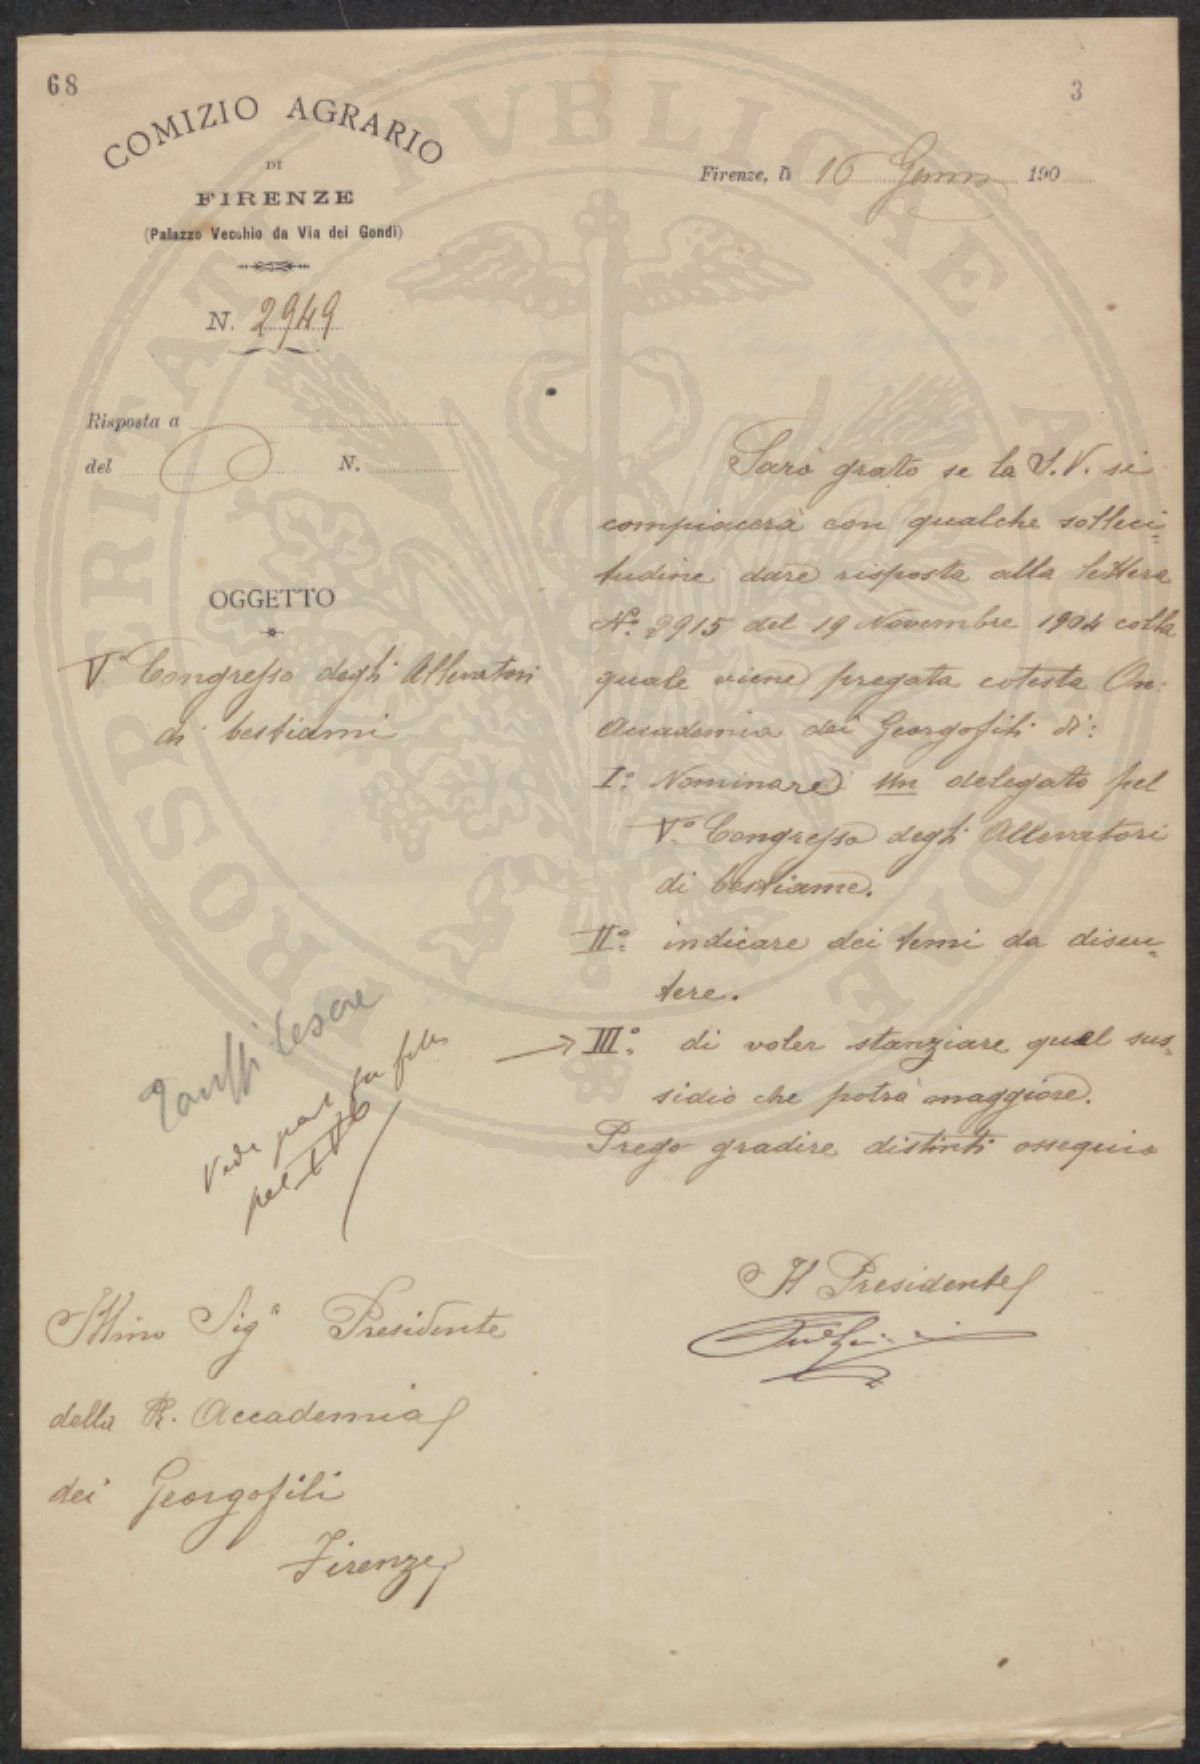 68
3
COMIZIO AGRARIO
DI
FIRENZE
(Palazzo Vecchio da Via dei Gondi)
Firenze, li 16 190
N. 2949
Risposta a
del N.
OGGETTO
V° Congresso degli Allevatori
di bestiami
Sarò grato se la S.V. si
compiacerà con qualche solleci-
tudine dare risposta alla lettera
N° 2915 del 19 Novembre 1904 colla
quale viene pregata cotesta On:
Accademia dei Georgofili di:
I° Nominare un delegato pel
V° Congresso degli Allevatori
di bestiame.
II° indicare dei temi da discu-
tere.
III° di voler stanziare qual sus-
sidio che potrà maggiore.
Prego gradire distinti ossequio
Cesare
Il Presidente
Illmo Sig° Presidente
della R. Accademia
dei Georgofili
Firenze
PROSPERITATI PVBLICAE AVGENDAE